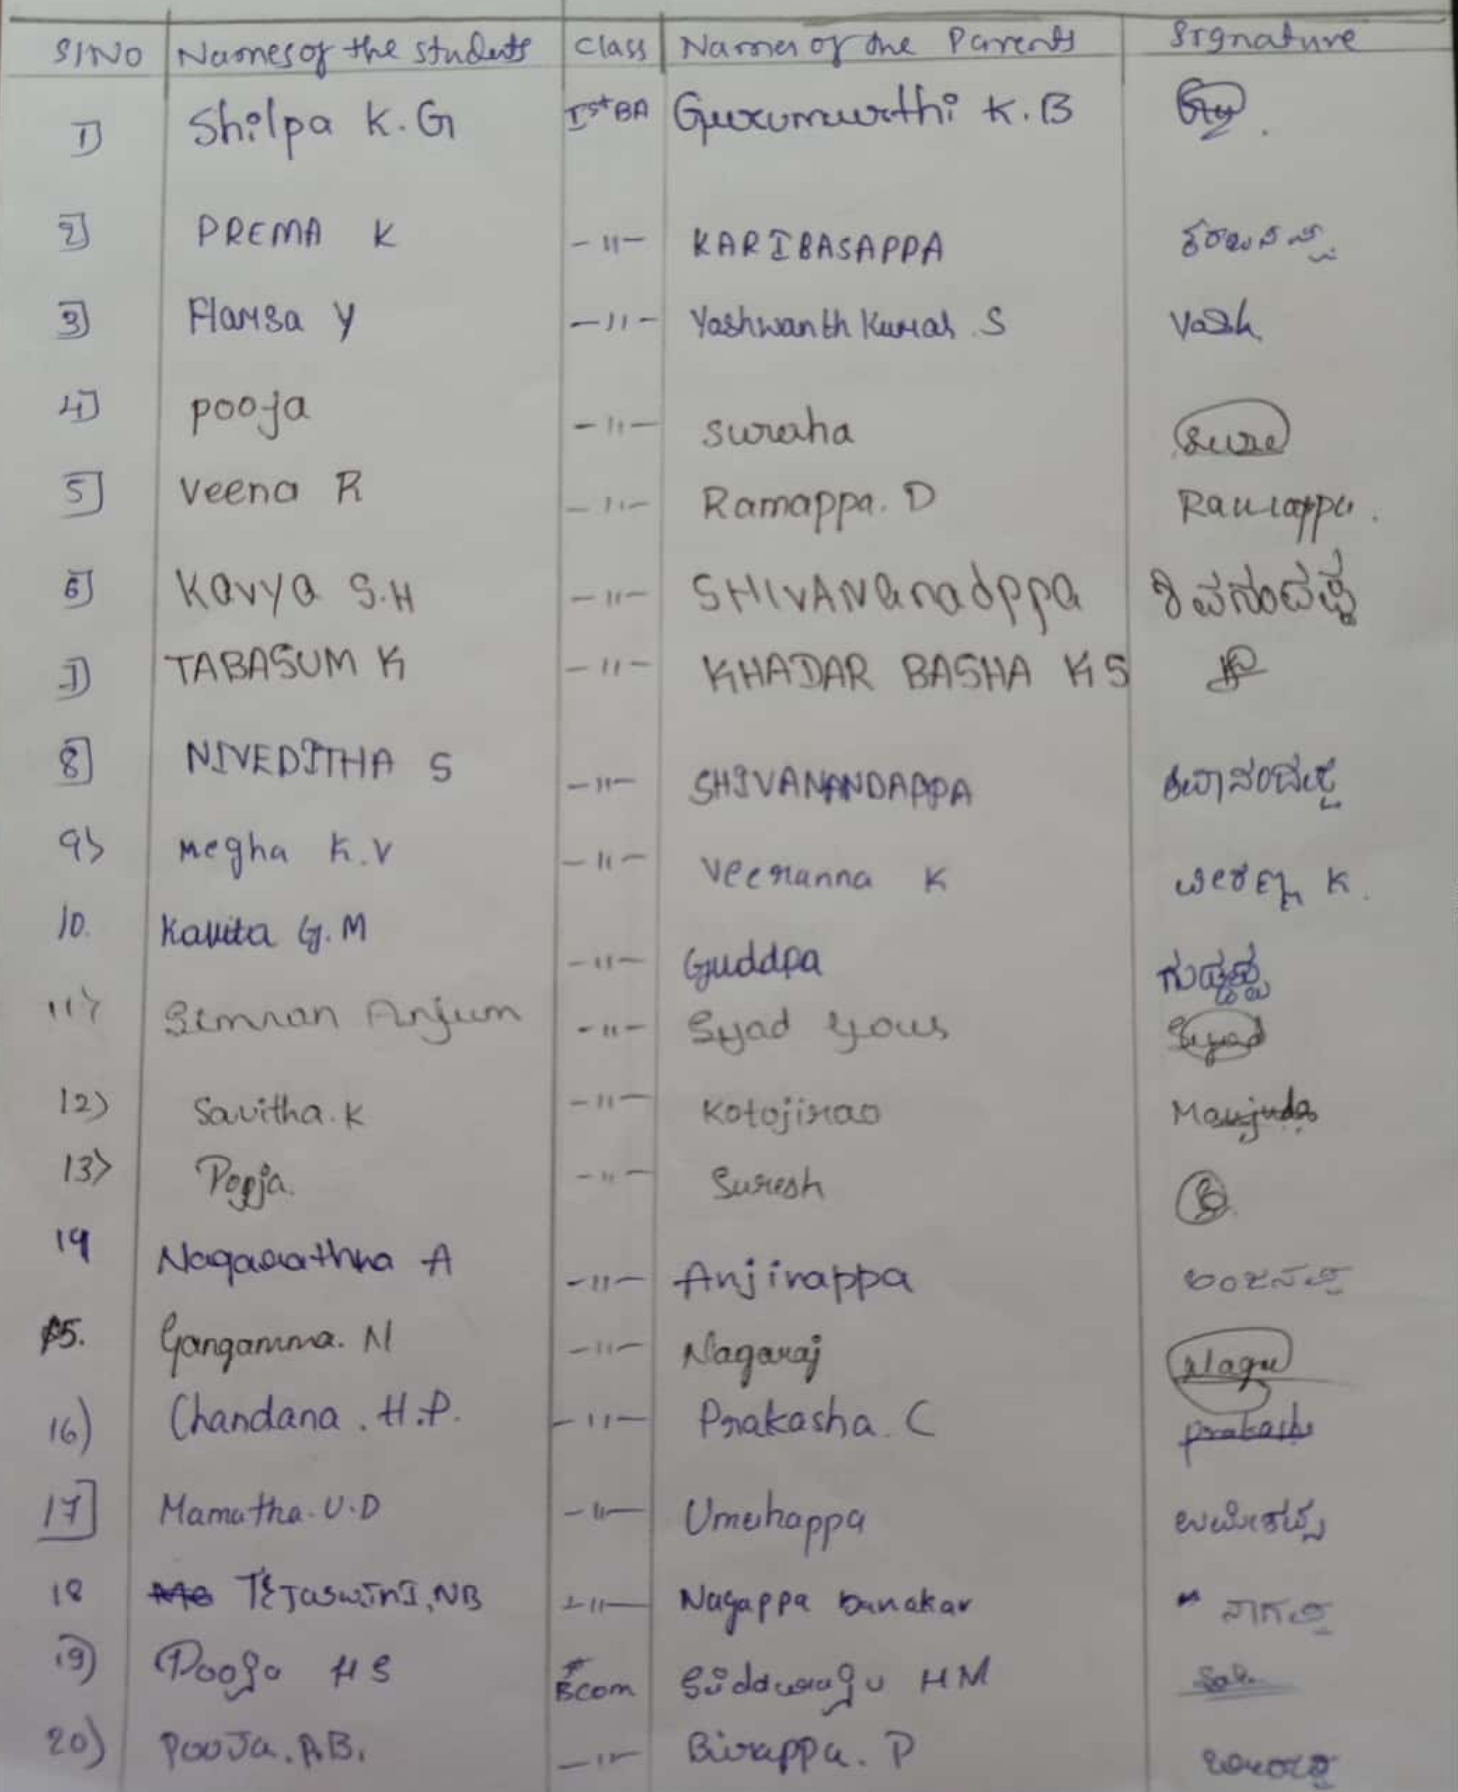 Sl NO Names of the students Class Names of the Parents Signature
1) Shilpa K.G Ist BA Gurumurthi K.B
2) PREMA K -11- KARIBASAPPA
3) Hamsa Y -11- Yashwanth Kumar S Yash
4) pooja -11- suraha Sure
5) Veena R -11- Ramappa. D Ramappa.
6) Kavya S.H -11- SHIVANanadppa ಶಿವನಂದಪ್ಪ
7) TABASUM K -11- KHADAR BASHA K S
8) NIVEDITHA S -11- SHIVANANDAPPA ಶಿವಾನಂದಪ್ಪ
9) Megha K.V -11- Veeranna K ವೀರಣ್ಣ K.
10. Kavita G.M -11- Guddpa ಗುಡ್ಡಪ್ಪ
11) Simran Anjum -11- Syad Yous Syad
12) Savitha.K -11- Kotojirao Manjuda
13) Pooja. -11- Suresh
14 Nagarathna A -11- Anjinappa ಅಂಜನಪ್ಪ
15. Gangamma. N -11- Nagaraj Nagu
16) Chandana . H.P. -11- Prakasha. C Prakash
17] Mamatha.U.D -11- Umehappa ಉಮೇಶಪ್ಪ
18 TEJaswInI.NB -11- Nagappa Danakar ನಾಗಪ್ಪ
19) Pooja H S Bcom Siddaraju HM
20) PooJa.A.B. -11- Birappa. P ಬೀರಪ್ಪ